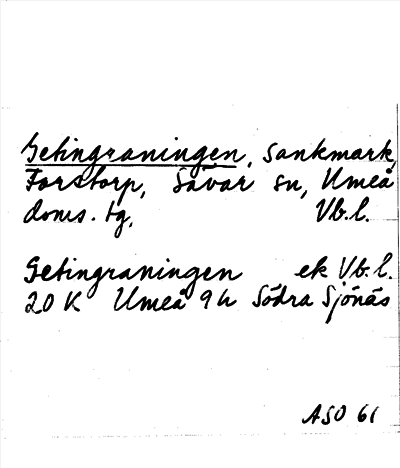 Getingraningen, sankmark,
Forstorp, Sävar sn, Umeå
doms. tg, Vb.l.
Getingraningen ek Vb.l.
20 K Umeå 9 h Södra Sjönäs
ASO 61